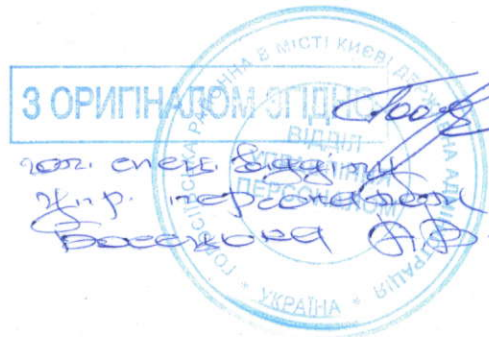 З ОРИГІНАЛОМ ЗГІДНО
ГОЛОСІЇВСЬКА РАЙОННА В МІСТІ КИЄВІ ДЕРЖАВНА АДМІНІСТРАЦІЯ
* УКРАЇНА *
ВІДДІЛ
УПРАВЛІННЯ
ПЕРСОНАЛОМ
гол. спец. відділу
упр. персоналом